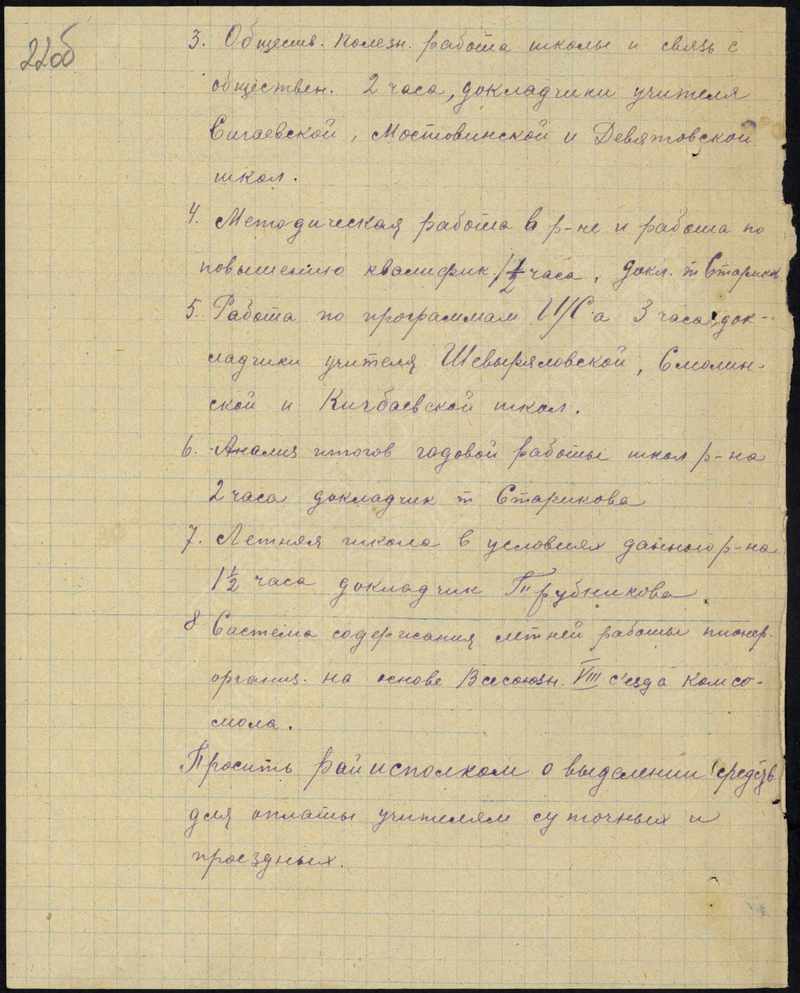 22об
3. Обществ. полезн. работа школы и связь с
обществен. 2 часа, докладчики учителя
Сигаевской, Мостовинской и Девятовской
школ.
4. Методическая работа в р-не и работа по
повышению квалифик 1 1/2 часа, докл. т Старик
5. Работа по программам ГУС-а 3 часа, док-
ладчики учителя Шевыряловской, Смолин-
ской и Кичбаевской школ.
6. Анализ итогов годовой работы школ р-на
2 часа докладчик т Старикова
7. Летняя школа в условиях данного р-на
1 1/2 часа докладчик Трубникова.
8 Система содержания летней работы пионер.
организ. на основе Всесоюзн. VIII с'езда комсо-
мола.
Просить райисполком о выделении средств
для оплаты учителям суточных и
проездных.